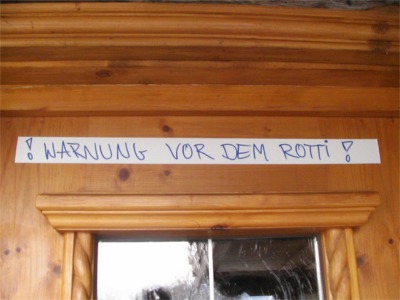 ! WARNUNG VOR DEM ROTTi !